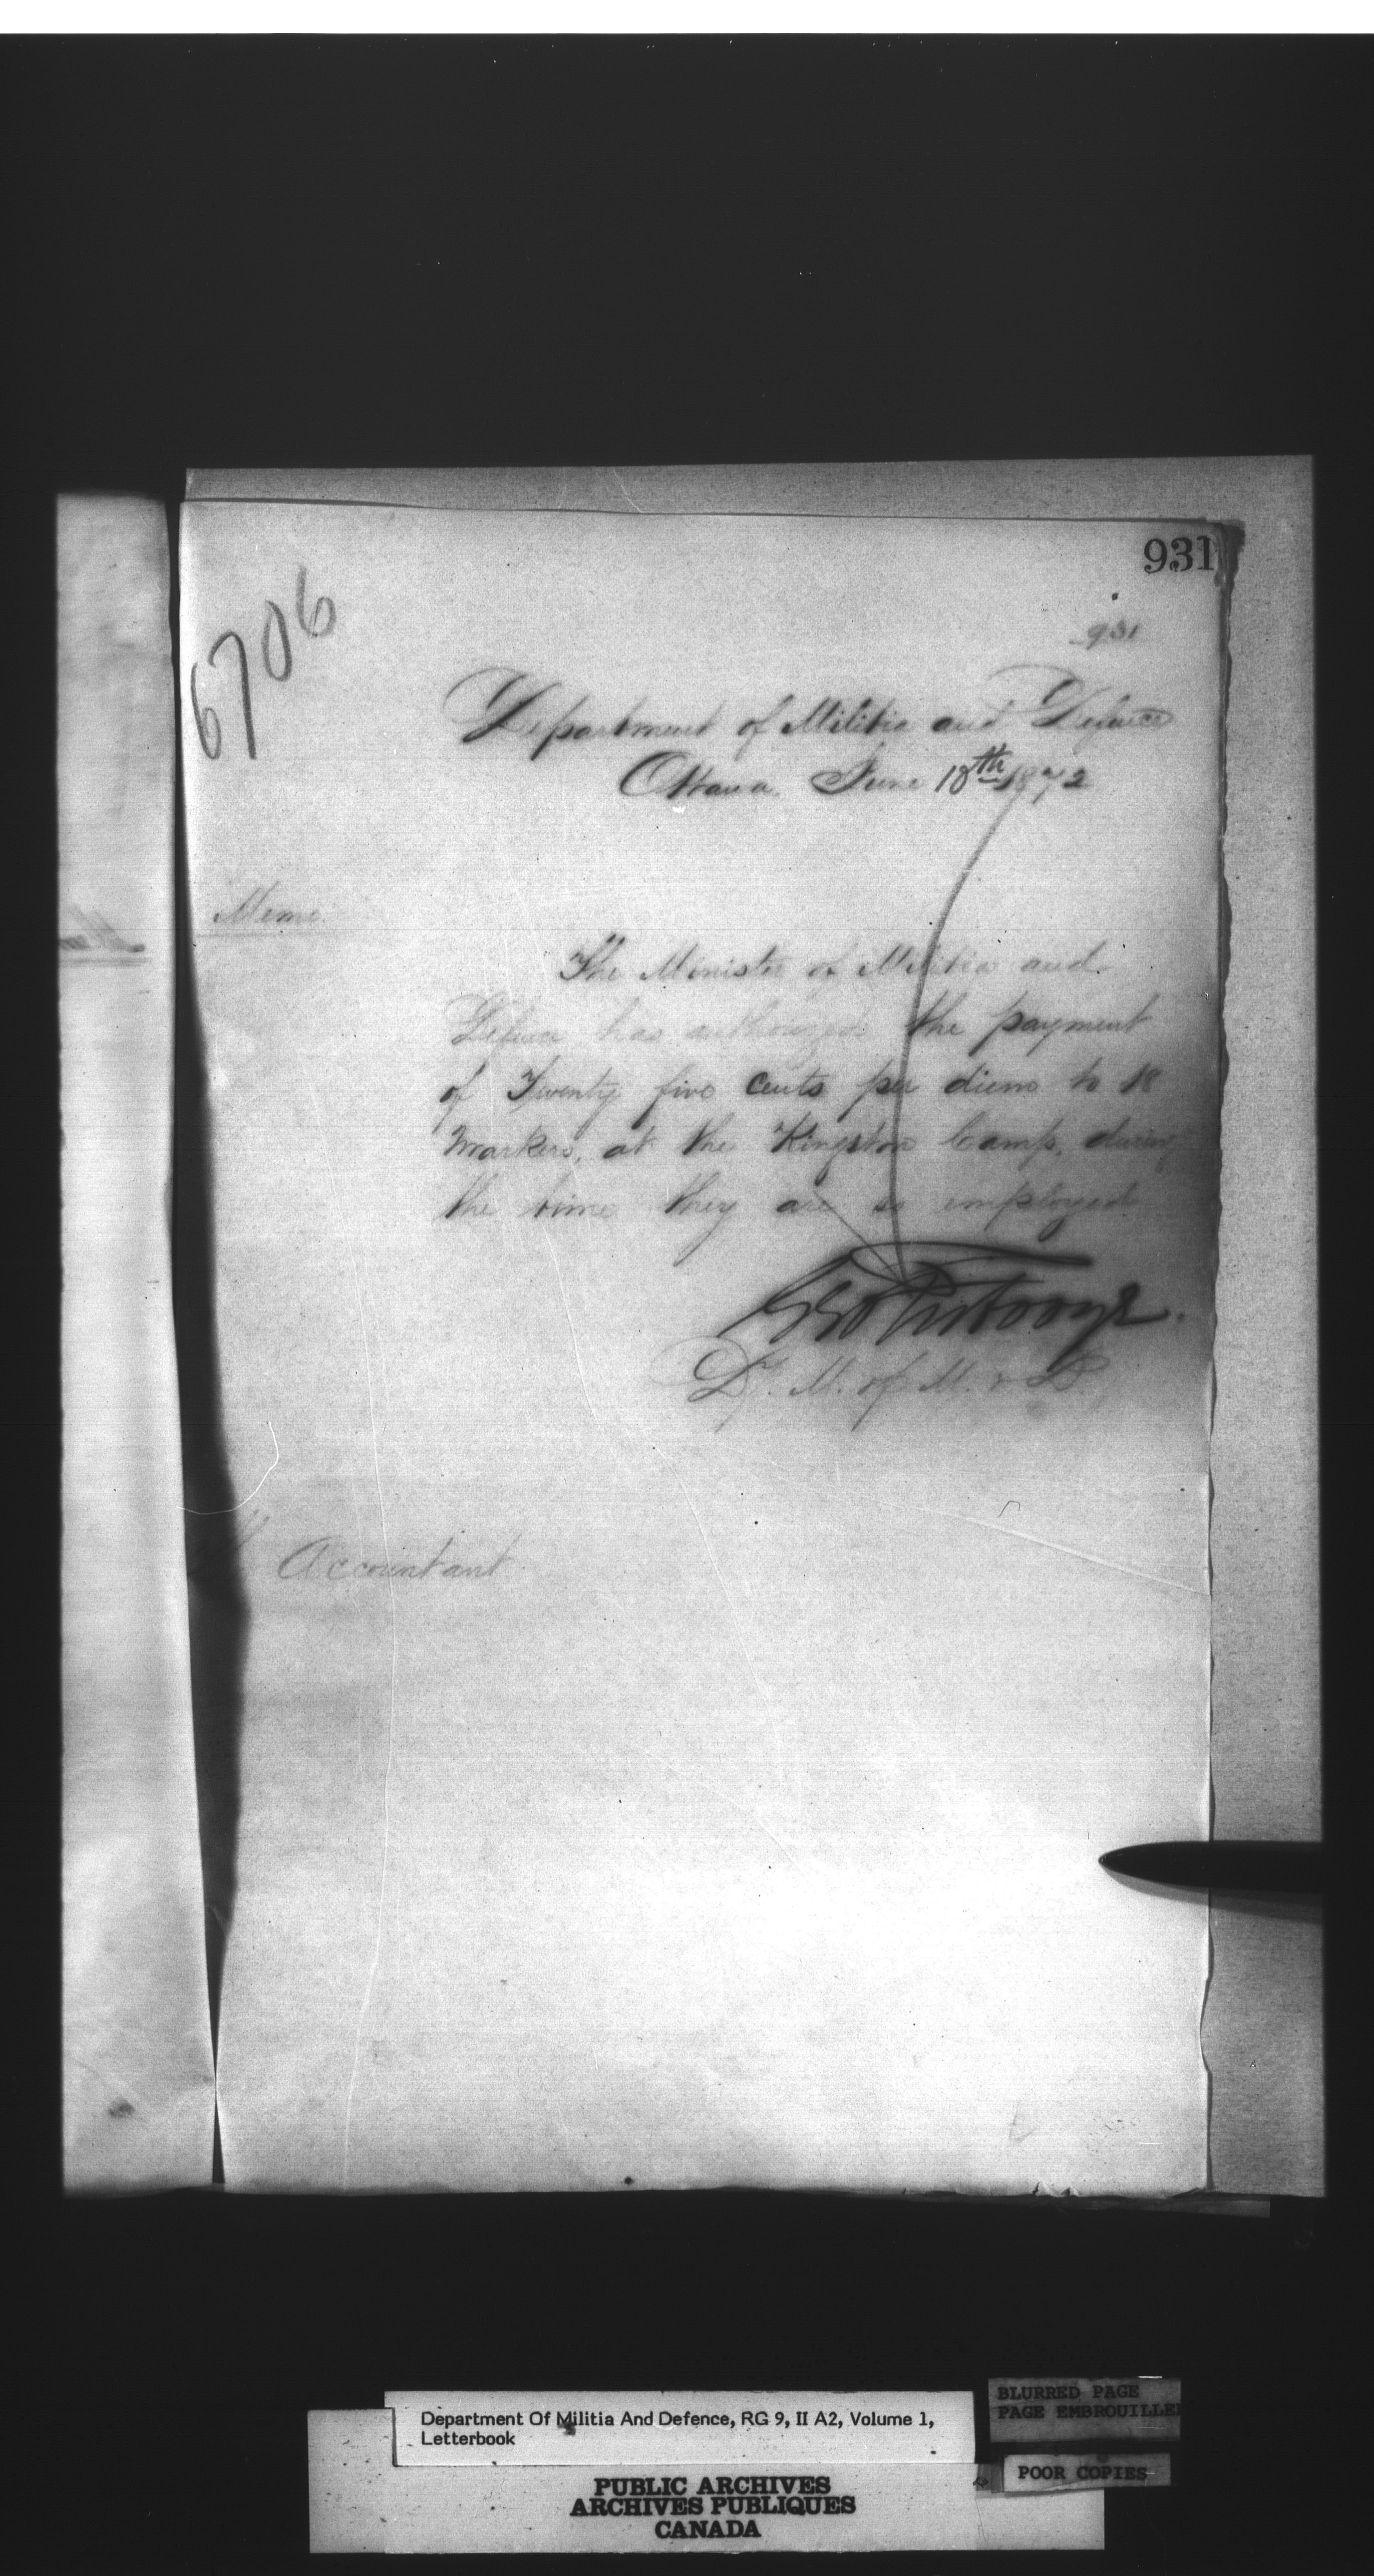 931
6706
931
Department of Militia and Defence
Ottawa. June 18th 1872
Memo.
The Minister of Militia and
Defence has authorized the payment
of Twenty five Cents per diem to 18
Markers, at the Kingston Camp, during
the time they are so employed
D. M. of M. & D.
Accountant
Department Of Militia And Defence, RG 9, II A2, Volume 1,
Letterbook
BLURRED PAGE
PAGE EMBROUILLEE
POOR COPIES
PUBLIC ARCHIVES
ARCHIVES PUBLIQUES
CANADA